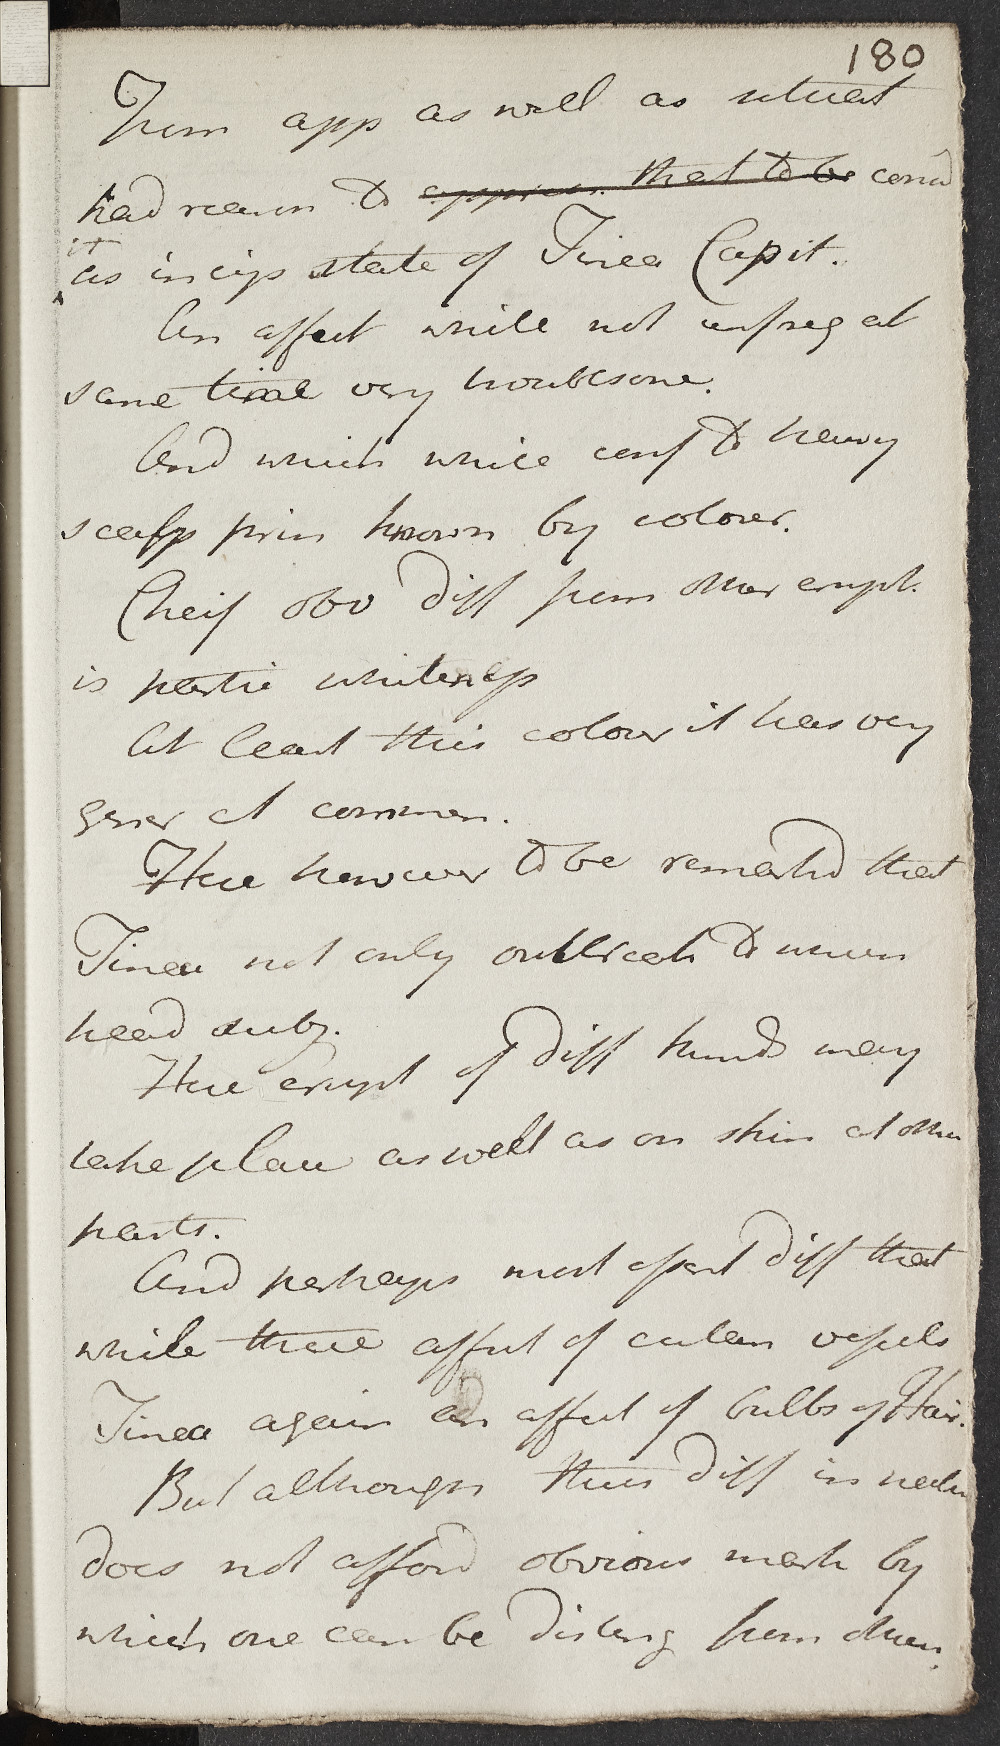 180
From app as well as situat
had reason to appreu. that to be consid
it
as incip state of Tinea Capit.
An affect while not unfreq at
same time very troublesome.
And which while conf to hairy
scalp prin known by colour.
Cheif obv diff from other erupt.
is partic whiteness
At least this colour it has very
gener at commen.
Here however to be remarkd that
Tinea not only outbreak to which
head subj.
Here erupt of diff kinds may
take place as well as on skin at other
parts.
And perhaps most essent diff that
while these affect of cutan vessels
Tinea again an affect of bulbs of Hair.
But although this diff in natu
does not afford obvious mark by
which one can be disting from other.